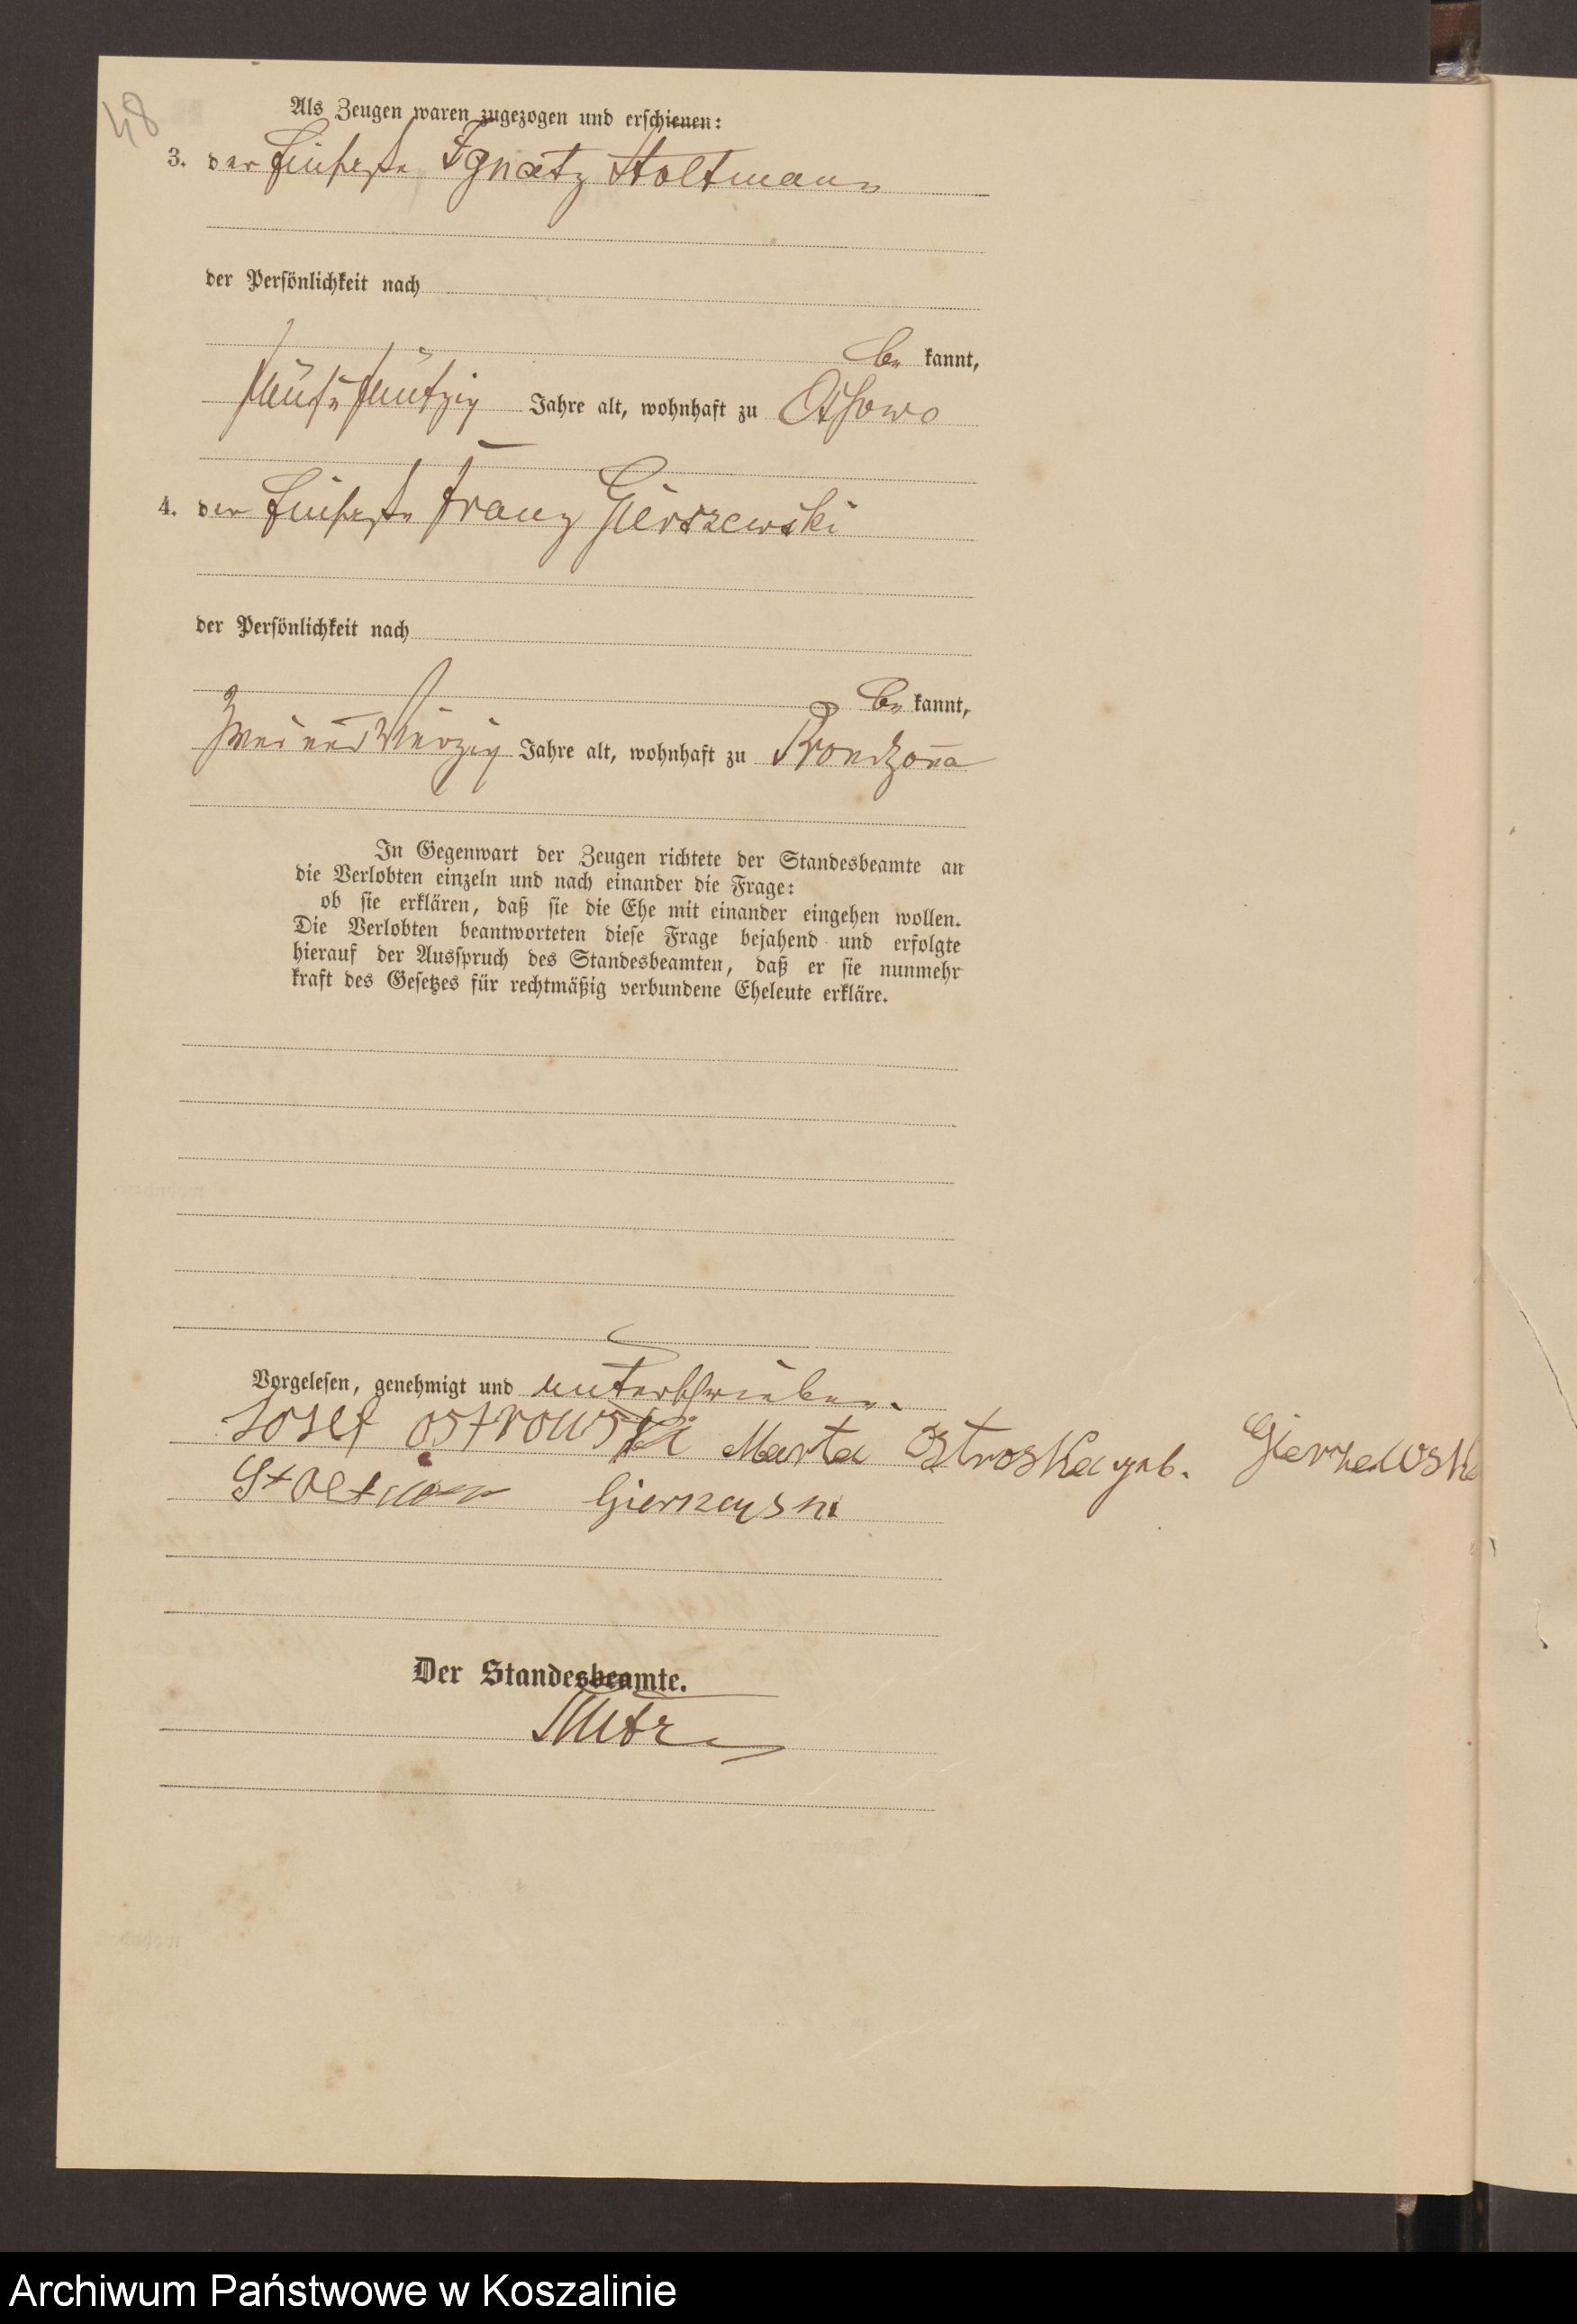 48
Als Zeugen waren zugezogen und erschienen:
3. der Ignatz Stoltmann
der Persönlichkeit nach
be kannt,
Jahre alt, wohnhaft zu Ossowo
4. der Franz Gierszewski
der Persönlichkeit nach
be kannt,
zwei und vierzig Jahre alt, wohnhaft zu Prondzona
In Gegenwart der Zeugen richtete der Standesbeamte an
die Verlobten einzeln und nach einander die Frage:
ob sie erklären, daß sie die Ehe mit einander eingehen wollen.
Die Verlobten beantworteten diese Frage bejahend und erfolgte
hierauf der Ausspruch des Standesbeamten, daß er sie nunmehr
kraft des Gesetzes für rechtmäßig verbundene Eheleute erkläre.
Vorgelesen, genehmigt und unterschrieben.
Josef Ostrowski Marta Ostroska geb.
Der Standesbeamte.
Archiwum Państwowe w Koszalinie